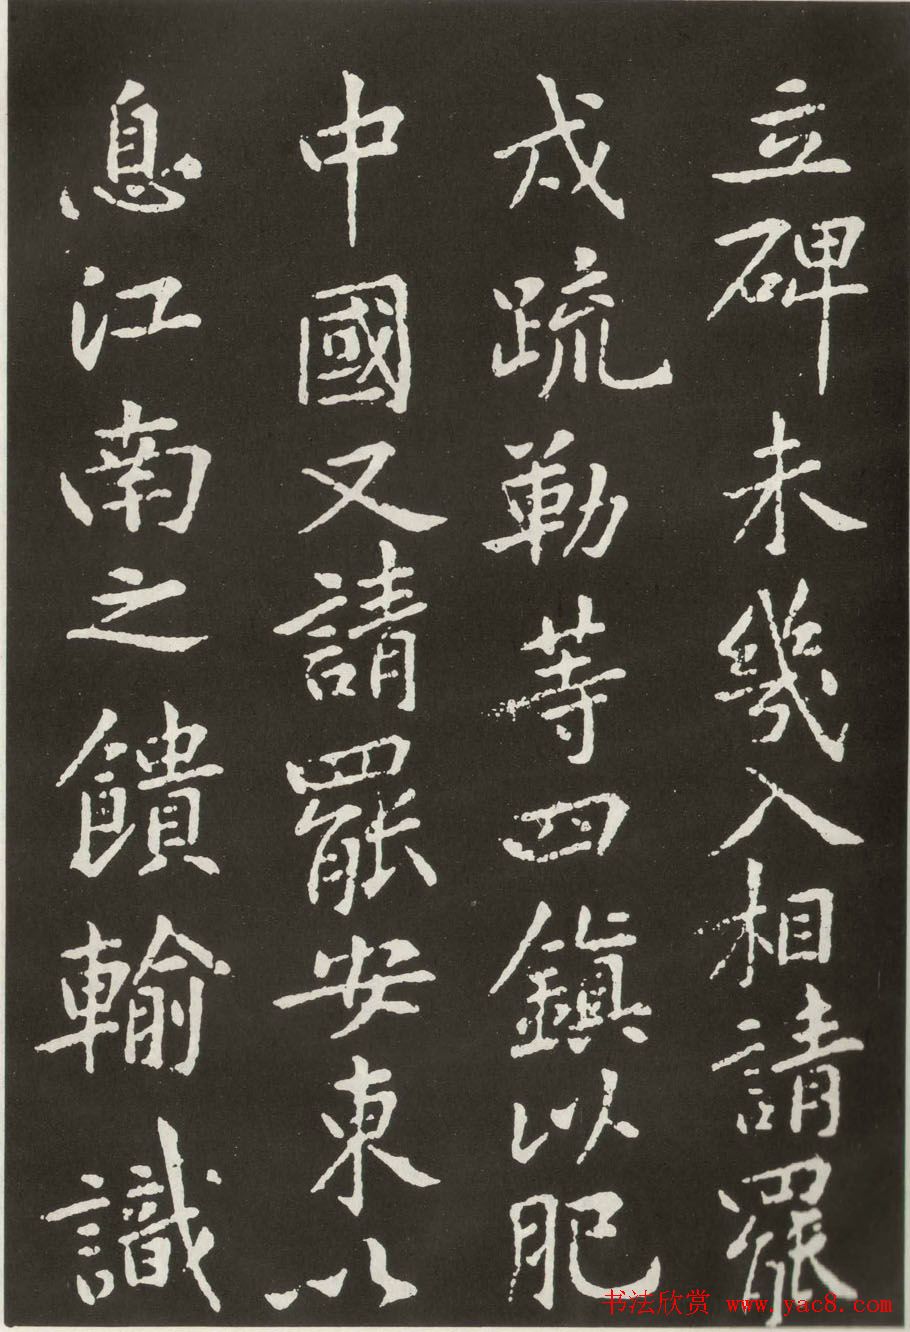 立碑未幾入相請罷
戍疏勒等四鎮以肥
中國又請罷安東以
息江南之饋輸識
书法欣赏 www.yac8.com